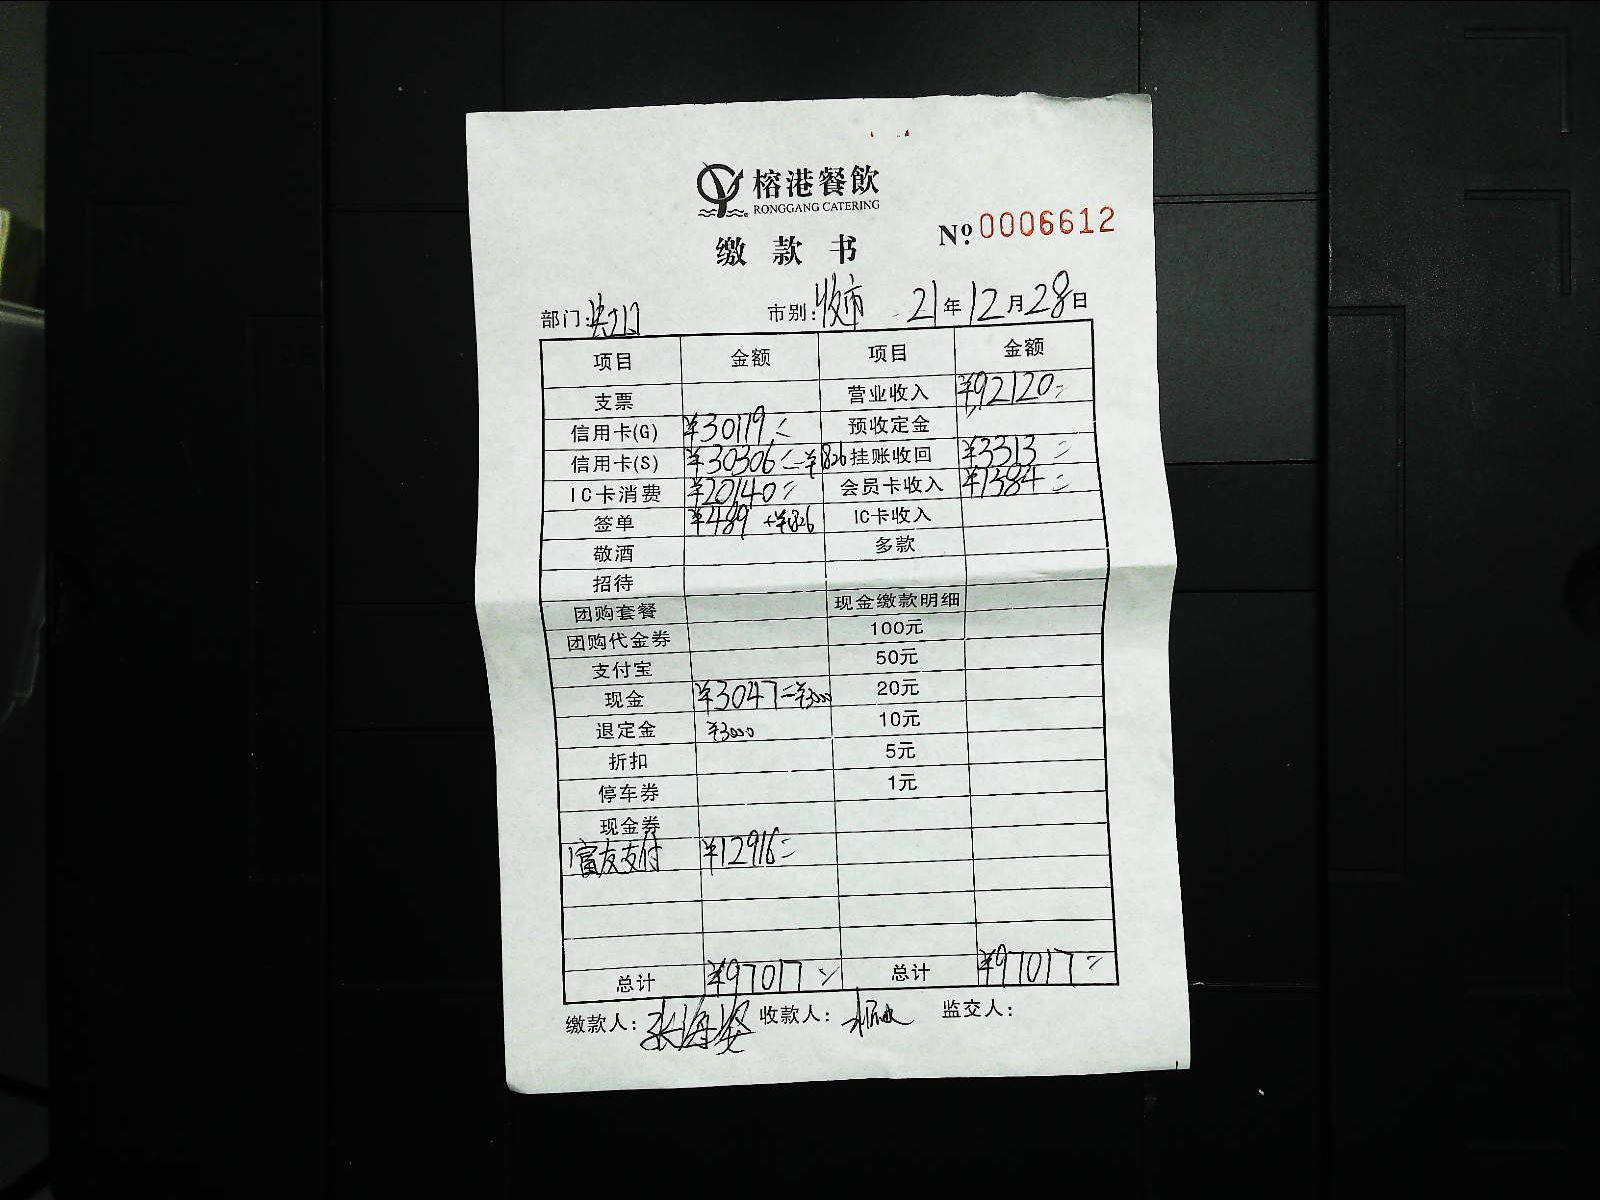 榕港餐飲
RONGGANG CATERING
缴款书
Nº.0006612
部门: 市别:收市 21年12月28日
项目 金额 项目 金额
支票 营业收入 ¥92120=
信用卡(G) ¥30119= 预收定金
信用卡(S) ¥30306=-¥826 挂账收回 ¥3313=
IC卡消费 ¥20140= 会员卡收入 ¥1584=
签单 ¥489 +¥826 IC卡收入
敬酒 多款
招待
团购套餐 现金缴款明细
团购代金券 100元
支付宝 50元
现金 ¥3047=-¥3000 20元
退定金 ¥3000 10元
折扣 5元
停车券 1元
现金券
富友支付 ¥12916=
总计 ¥97017= 总计 ¥97017=
缴款人: 收款人: 监交人: